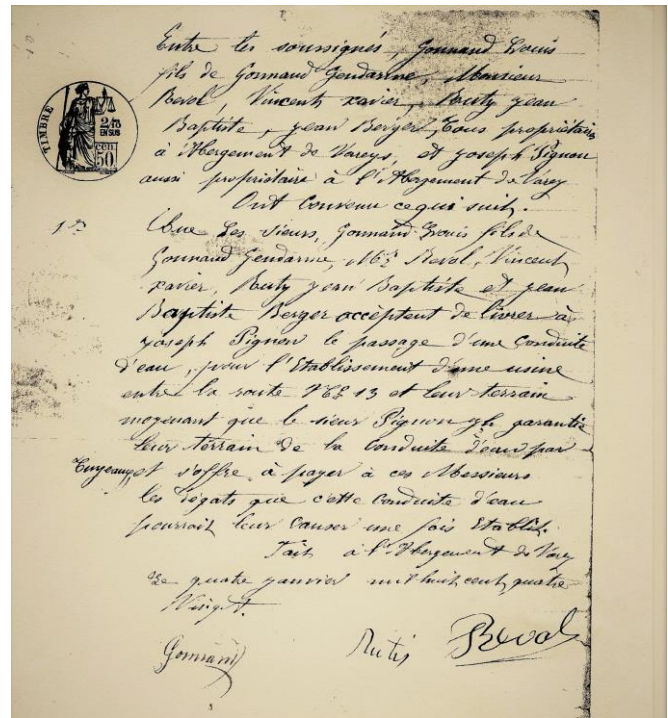 TIMBRE
2/10
EN SUS
50 CEN
Entre les soussignés, Gonnand Louis
fils de Gonnand Gendarme, Monsieur
Revol, Vincent xavier, Ruty jean
Baptiste, jean Berger, Tous propriétaires
à Abergement de Vareys, et joseph Pignon
aussi propriétaire à l'Abergement de Varey
Ont Convenu ce qui suit.
1°
Que Les sieurs, Gonnand Louis fils de
Gonnand Gendarme, Mr Revol, Vincent
xavier, Ruty jean Baptiste et jean
Baptiste Berger accèptent de livrer à
joseph Pignon le passage d'une Conduite
d'eau, pour l'Etablissement d'une usine
entre la route N° 13 et leur terrain
moyenant que le sieur Pignon garantie
leur terrain de la Conduite d'eau par
Tuyeaux, et s'offre à payer à ces Messieurs
les dégats que cette Conduite d'eau
pourrait leur Causer une fois Etablit.
Fait à l'Abergement de Varey
Le quatre janvier mil huit cent quatre
Vingt.
Gonnand
Rutis
Revol